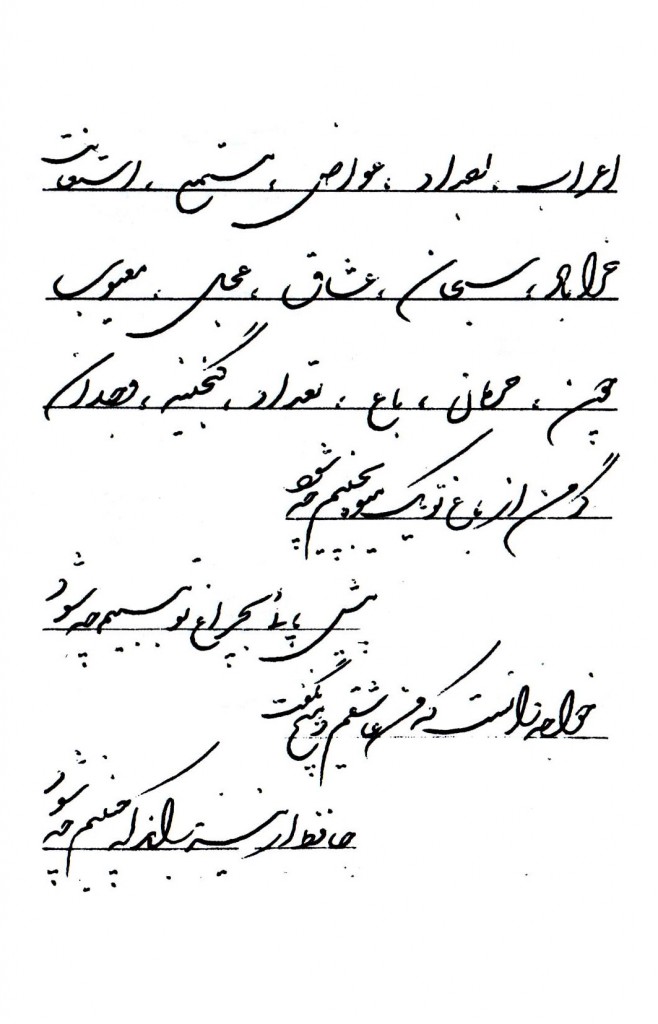 اعراب ، تعداد ، عوارض ، مستمع ، استعانت
خرابات ، سبحان ، عشاق ، عجلی ، معیوب
چون ، حرمان ، باغ ، تعداد ، گنجینه ، وجدان
گر من از باغ تو یک میوه بچینم چه شود
پیش پائی بچراغ تو ببینم چه شود
خواجه دانست که من عاشقم و هیچ نگفت
حافظ ار نیز بداند که چنینم چه شود